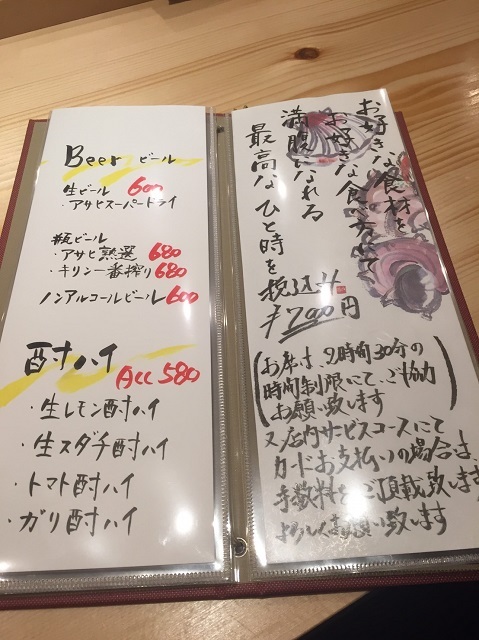 Beer ビール
生ビール 600
・アサヒスーパードライ
瓶ビール
・アサヒ熟選 680
・キリン一番搾り 680
ノンアルコールビール 600
酎ハイ All 580
・生レモン酎ハイ
・生スダチ酎ハイ
・トマト酎ハイ
・ガリ酎ハイ
お好きな食材を
お好きな食べ方で
満腹になれる
最高なひと時を
税込み
(お席は 2時間30分の
時間制限にて、ご協力
お願い致します)
又、店内サービスコースにて
カードお支払いの場合は
手数料をご頂戴致します
よろしくお願い致します